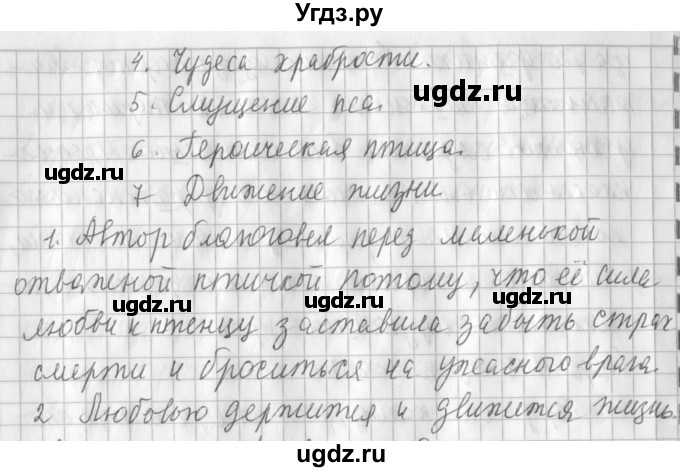 Угдз.ру
4. Чудеса храбрости.
5. Смущение пса.
6. Героическая птица.
7 Движение жизни
1. Автор благоговел перед маленькой
отважной птичкой потому, что её сила
любви к птенцу заставила забыть страх
смерти и броситься на ужасного врага.
2 Любовью держится и движется жизнь
ugdz.ru
ugdz.ru
ugdz.ru
ugdz.ru
ugdz.ru
ugdz.ru
ugdz.ru
Угдз.ру